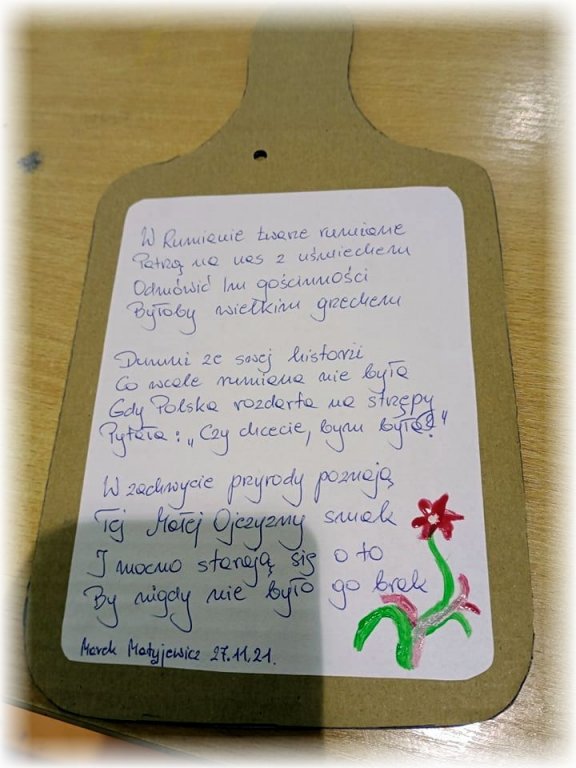 W Rumianie twarze rumiane
Patrzą na nas z uśmiechem
Odmówić Im gościnności
Byłoby wielkim grzechem
Dumni ze swej historii
Co wcale rumiana nie była
Gdy Polska rozdarta na strzępy
Pytała: „Czy chcecie, bym była?"
W zachwycie przyrody poznają
Tej Małej Ojczyzny smak
I mocno starają się o to
By nigdy nie było go brak
Marek Matyjewicz 27.11.21.